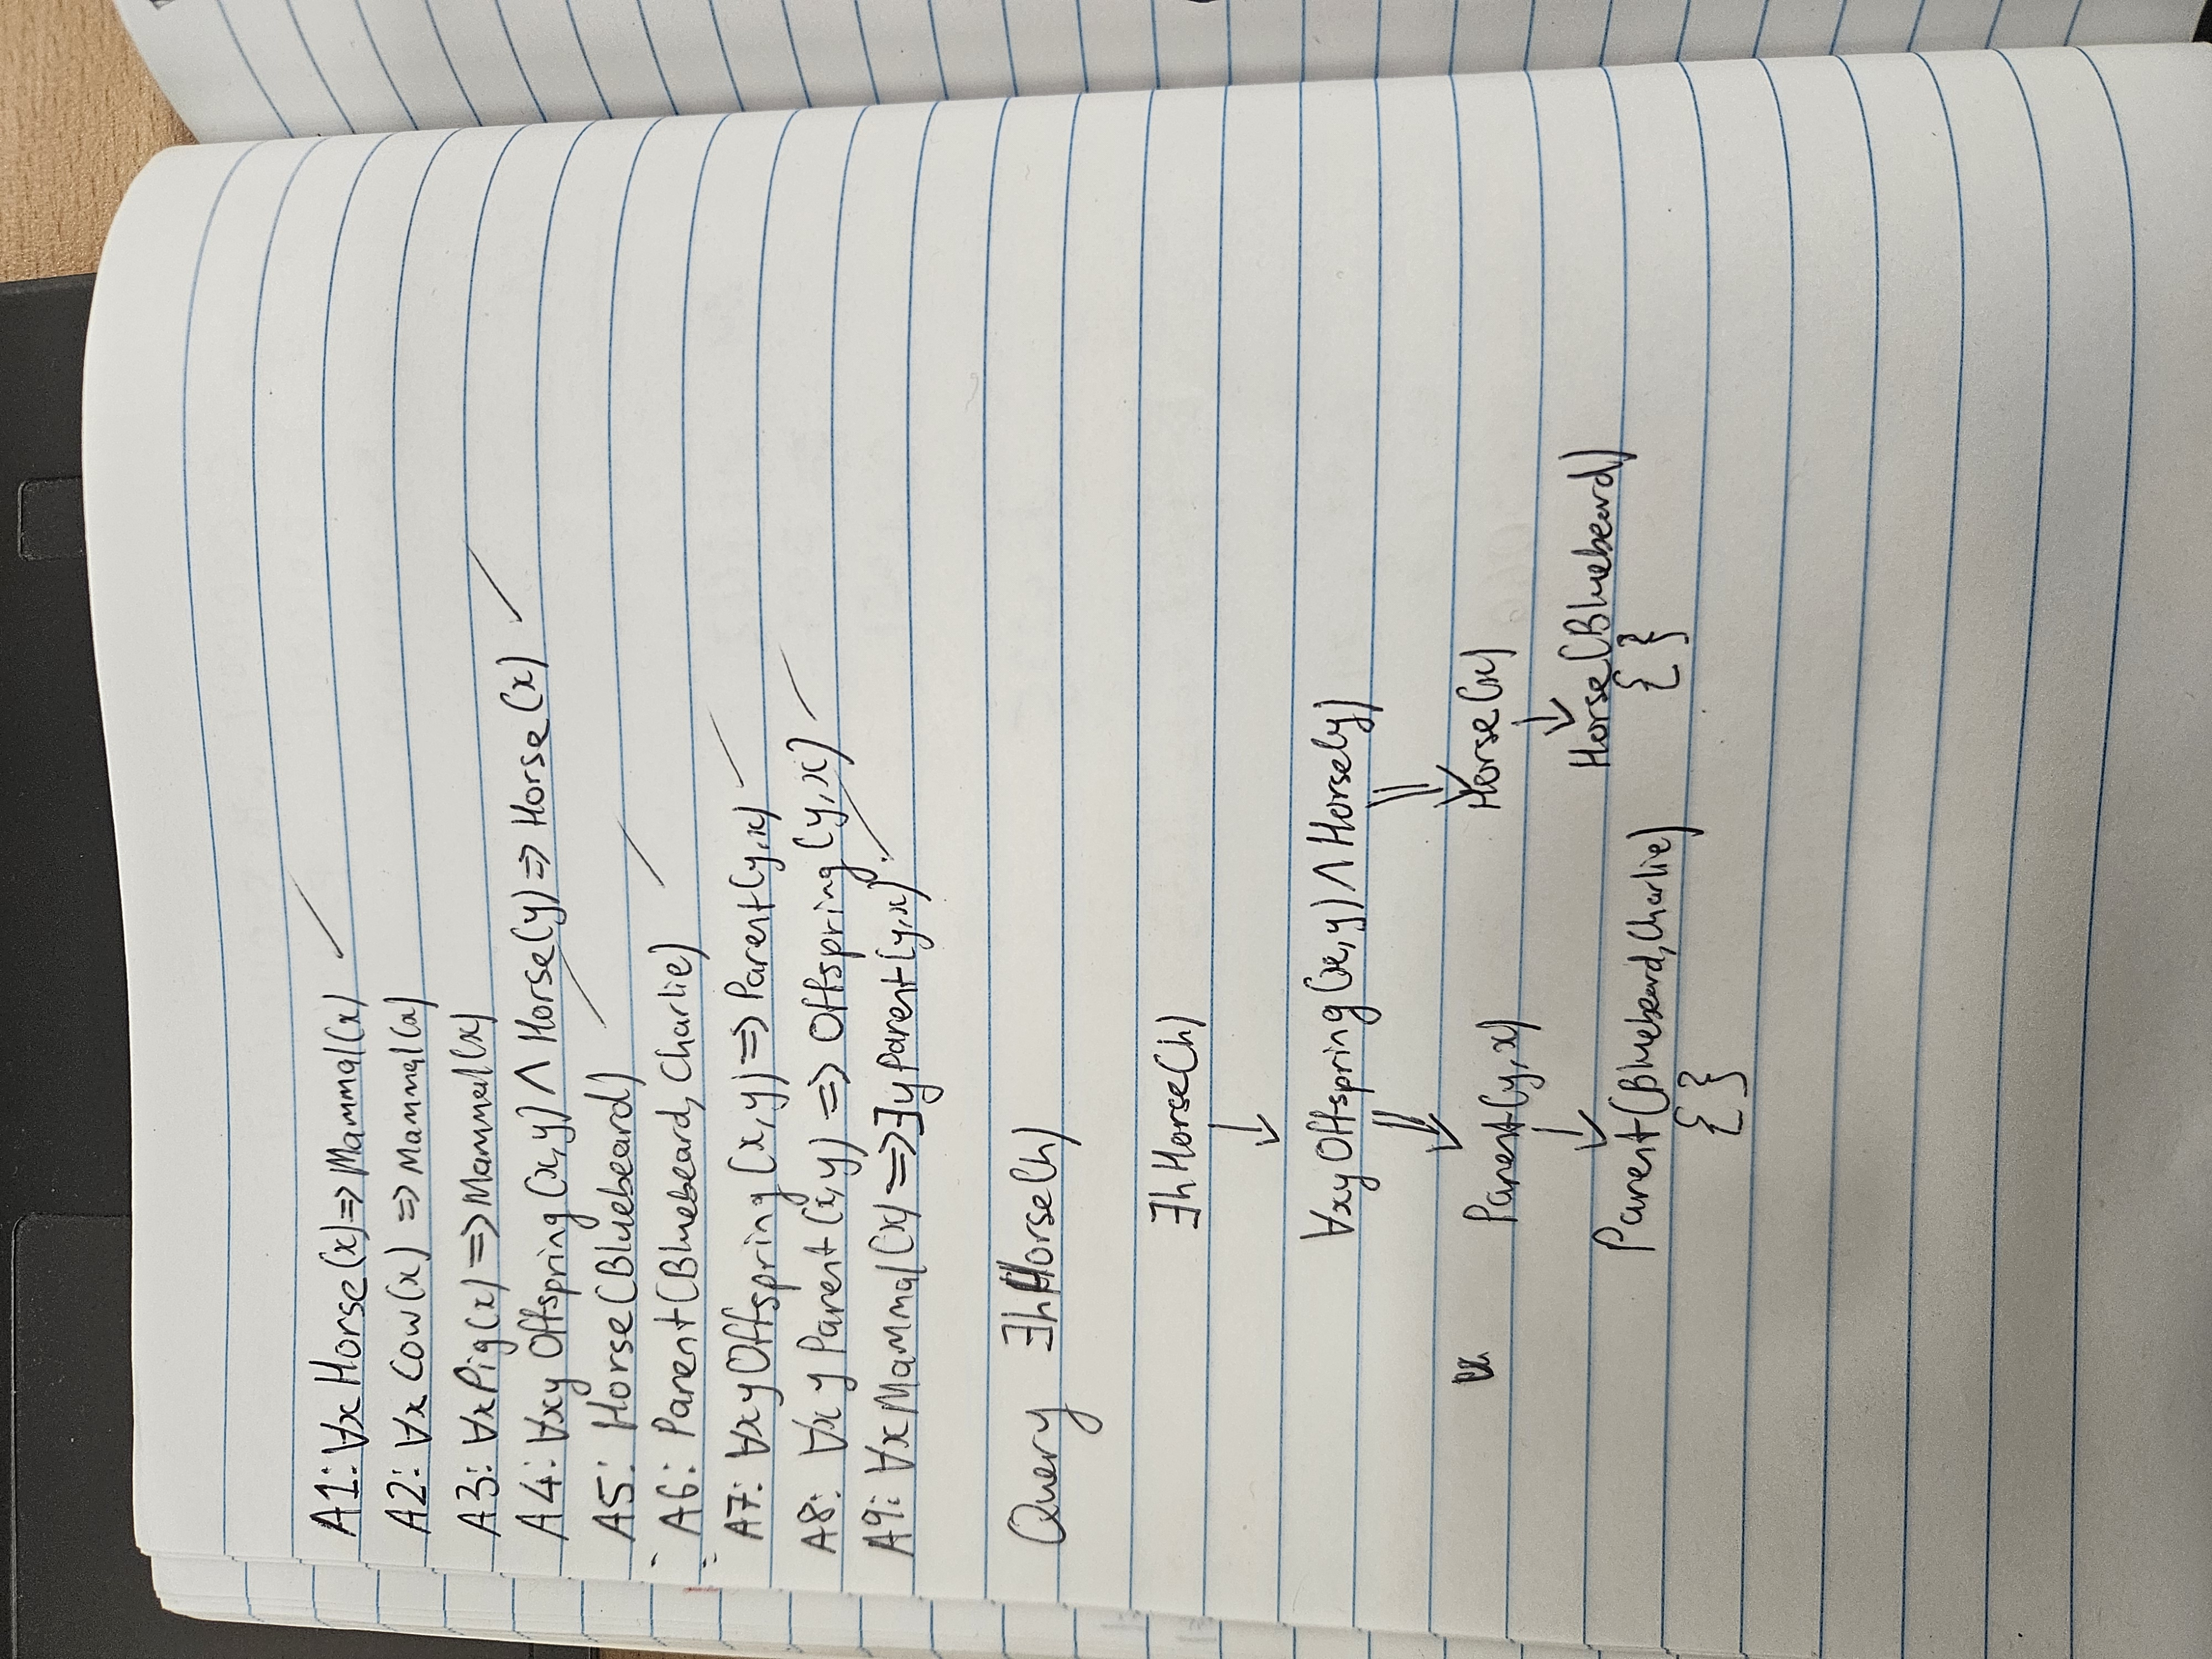 A1: ∀x Horse(x) => Mammal(x)
A2: ∀x Cow(x) => Mammal(x)
A3: ∀x Pig(x) => Mammal(x)
A4: ∀xy Offspring(x,y) ∧ Horse(y) => Horse(x)
A5: Horse(Bluebeard)
A6: Parent(Bluebeard, Charlie)
A7: ∀xy Offspring(x,y) => Parent(y,x)
A8: ∀xy Parent(x,y) => Offspring(y,x)
A9: ∀x Mammal(x) => ∃y Parent(y,x)
Query ∃h Horse(h)
∃h Horse(h)
∀xy Offspring(x,y) ∧ Horse(y)
Parent(y,x) Horse(x)
Parent(Bluebeard, Charlie) Horse(Bluebeard)
{ } { }